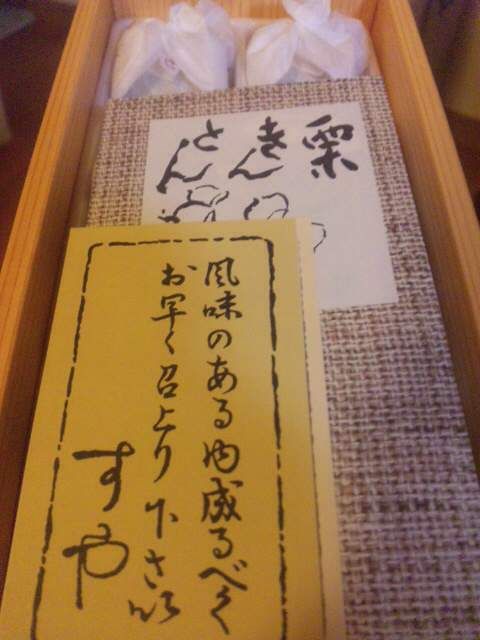 栗
きん
とん
風味のある内成るべく
お早く召上り下さい
すや